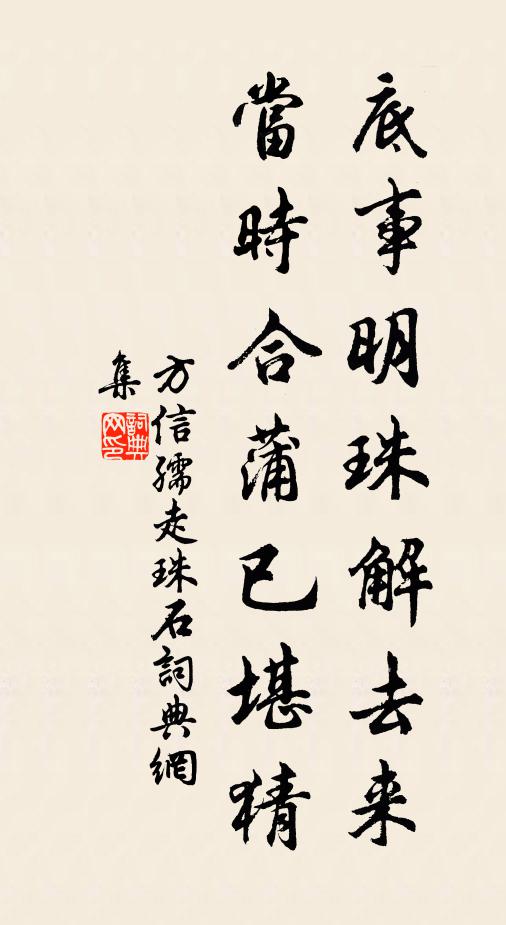 底事明珠解去来
當時合蒲已堪猜
方信孺走珠石詞典網
集
詞典網印